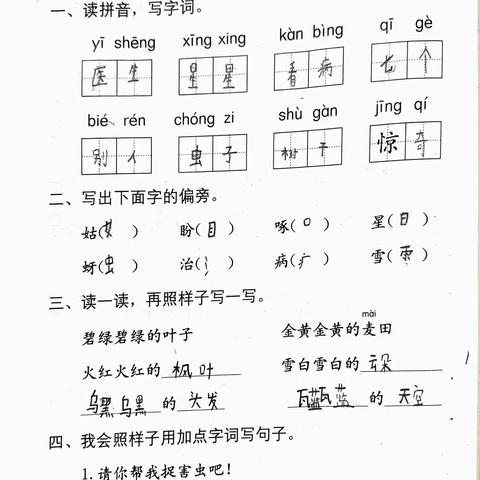 一、读拼音，写字词。
yī shēng xīng xing kàn bìng qī gè
医生 星星 看病 七个
bié rén chóng zi shù gàn jīng qí
别人 虫子 树干 惊奇
二、写出下面字的偏旁。
姑(女) 盼(目) 啄(口) 星(日)
蚜(虫) 治(氵) 病(疒) 雪(雨)
三、读一读，再照样子写一写。
mài
碧绿碧绿的叶子 金黄金黄的麦田
火红火红的 枫叶 雪白雪白的 云朵
的 头发 的 天空
四、我会照样子用加点字词写句子。
1.请你帮我捉害虫吧！